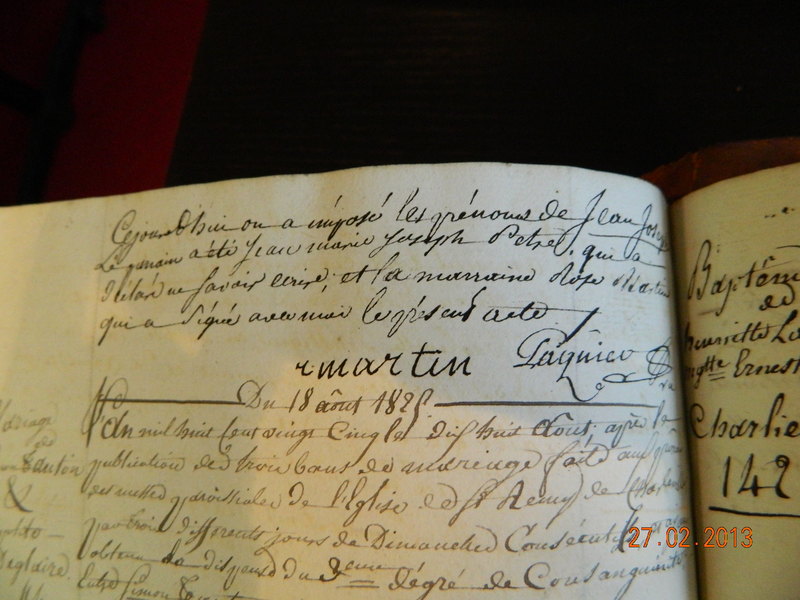 Cejourd'hui on a imposé les prénoms de Jean Joseph
Le parain a été Jean marie Joseph Petre, qui a
déclaré ne savoir écrire; et la marraine Rose Martin
qui a signé avec moi le présent acte
r martin Paignier
Du 18 août 1825
L'an mil huit cent vingt cinq le dix huit août, après la
publication des trois bans de mariage faite aux prônes
des messes paroissiales de l'Eglise de St Remy de
par trois differents jours de Dimanches Consécutifs
obtenu la dispense du 3eme dégré de Consanguinité
Entre Simon
Mariage
de
&
Baptême
de
henriette
Ernest
Charlie
142
27.02.2013